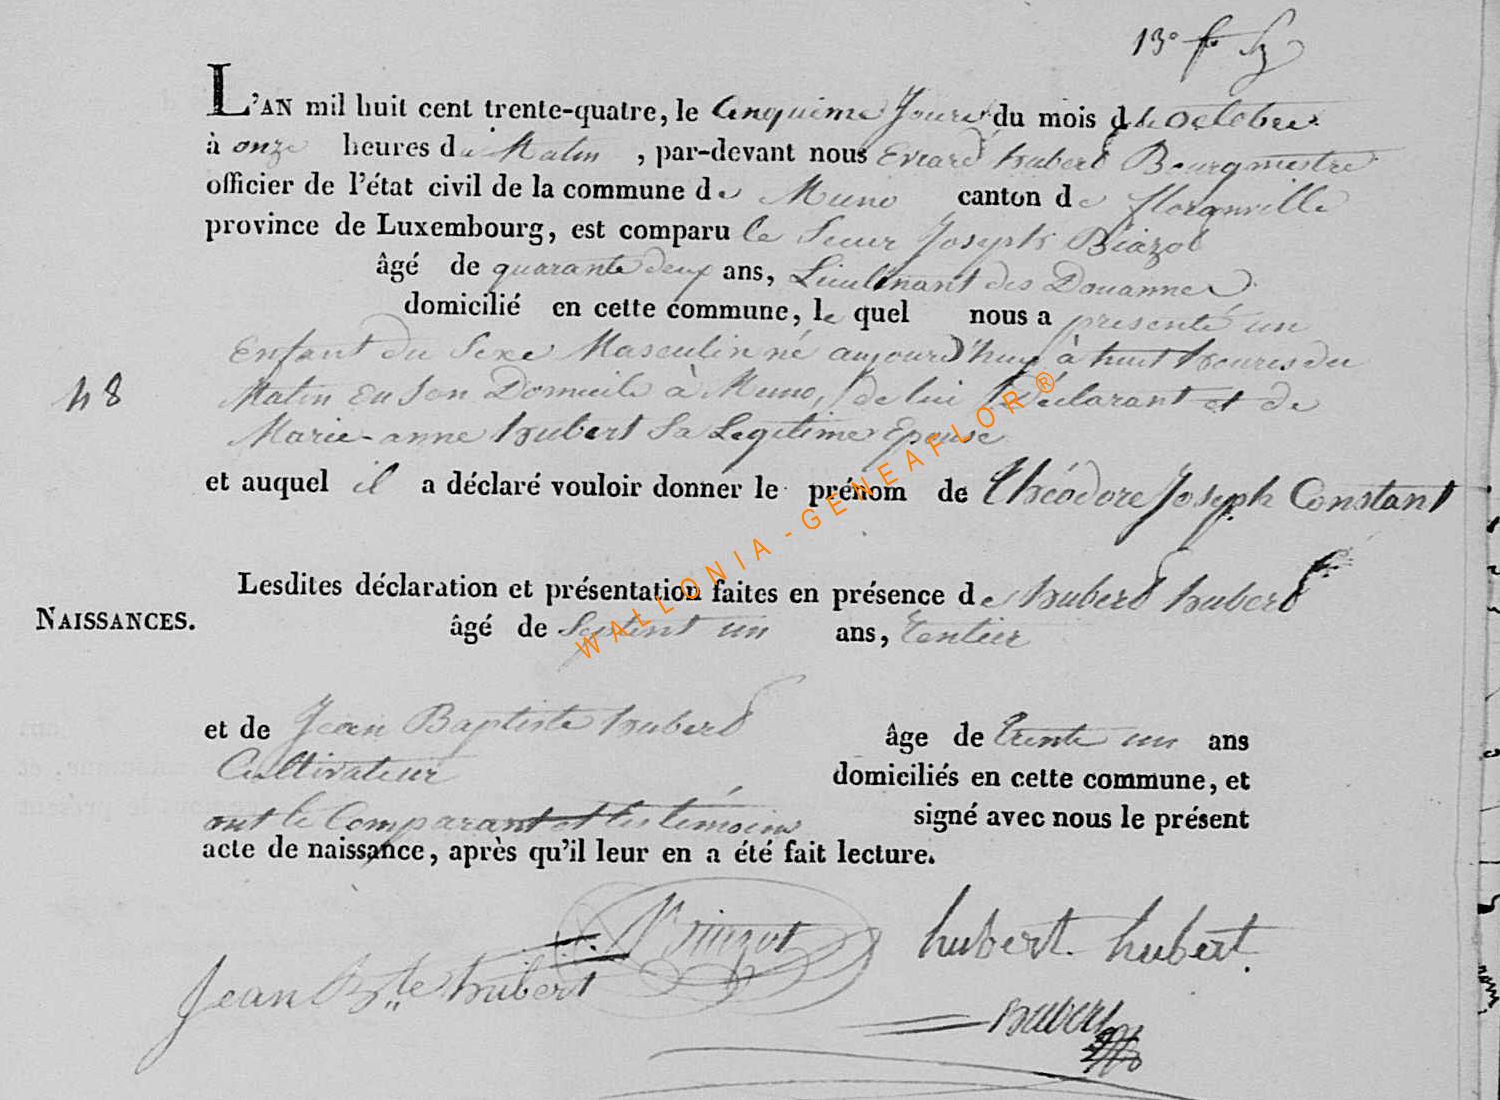 13e f.
L'AN mil huit cent trente-quatre, le Cinquieme Jour du mois d'octobre
à onze heures du Matin, par-devant nous Evrard hubert Bourgmestre
officier de l'état civil de la commune de Muno canton de florenville
province de Luxembourg, est comparu le Sieur Joseph Biazot
âgé de quarante deux ans, Lieutenant des Douannes
domicilié en cette commune, le quel nous a presenté un
Enfant du Sexe Masculin né aujourd'huy à huit heures du
Matin en Son Domicile à Muno, de lui Déclarant et de
Marie-anne hubert Sa Legitime Epouse
48
et auquel il a déclaré vouloir donner le prénom de Théodore Joseph Constant
Lesdites déclaration et présentation faites en présence de hubert hubert
NAISSANCES.
âgé de Septent un ans, Rentier
et de Jean Baptiste hubert âge de trente un ans
Cultivateur domiciliés en cette commune, et
ont le Comparant et les temoins signé avec nous le présent
acte de naissance, après qu'il leur en a été fait lecture.
hubert hubert
Jean Bte hubert
hubert
WALLONIA-GENEAFLOR®